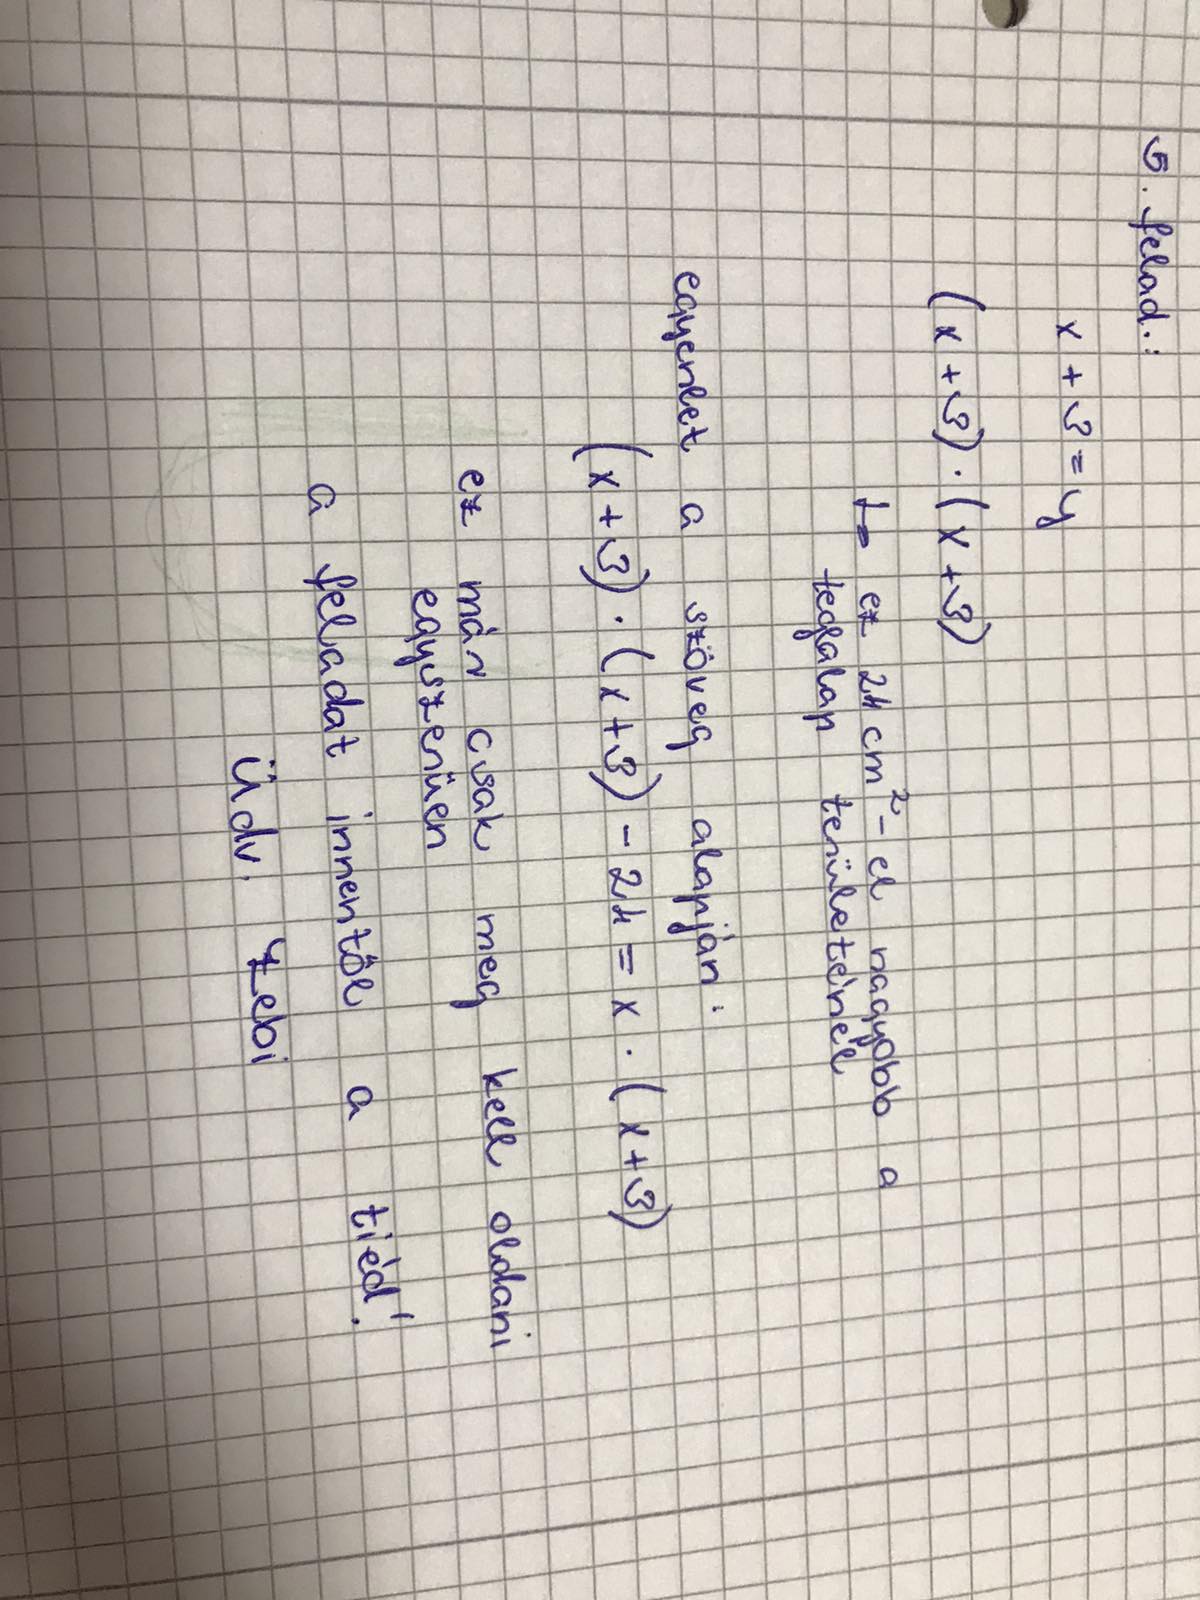 5. felad.:
x + 3 = y
(x + 3) · (x + 3)
ez 24 cm²-el nagyobb a
téglalap területénél
egyenlet a szöveg alapján:
(x + 3) · (x + 3) - 24 = x · (x + 3)
ez már csak meg kell oldani
egyszerűen
a feladat innentől a tiéd!
Üdv. Zebi